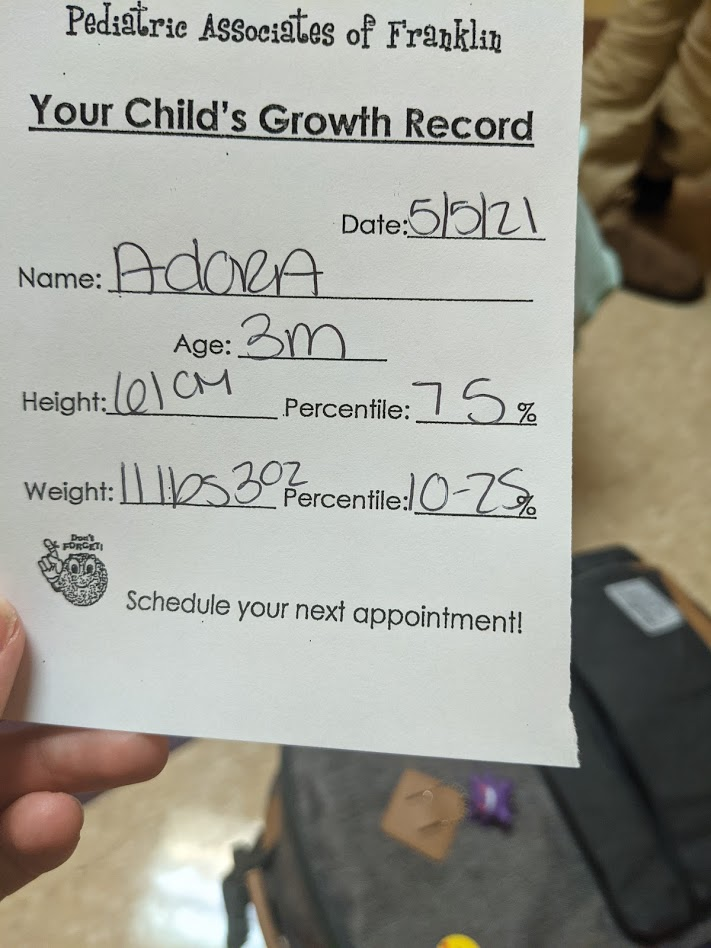 Pediatric Associates of Franklin
Your Child's Growth Record
Date: 5/5/21
Name: AdorA
Age: 3m
Height: 61 CM Percentile: 75 %
Weight: 11 lbs 3oz Percentile: 10-25 %
Don't
FORGET!
Schedule your next appointment!